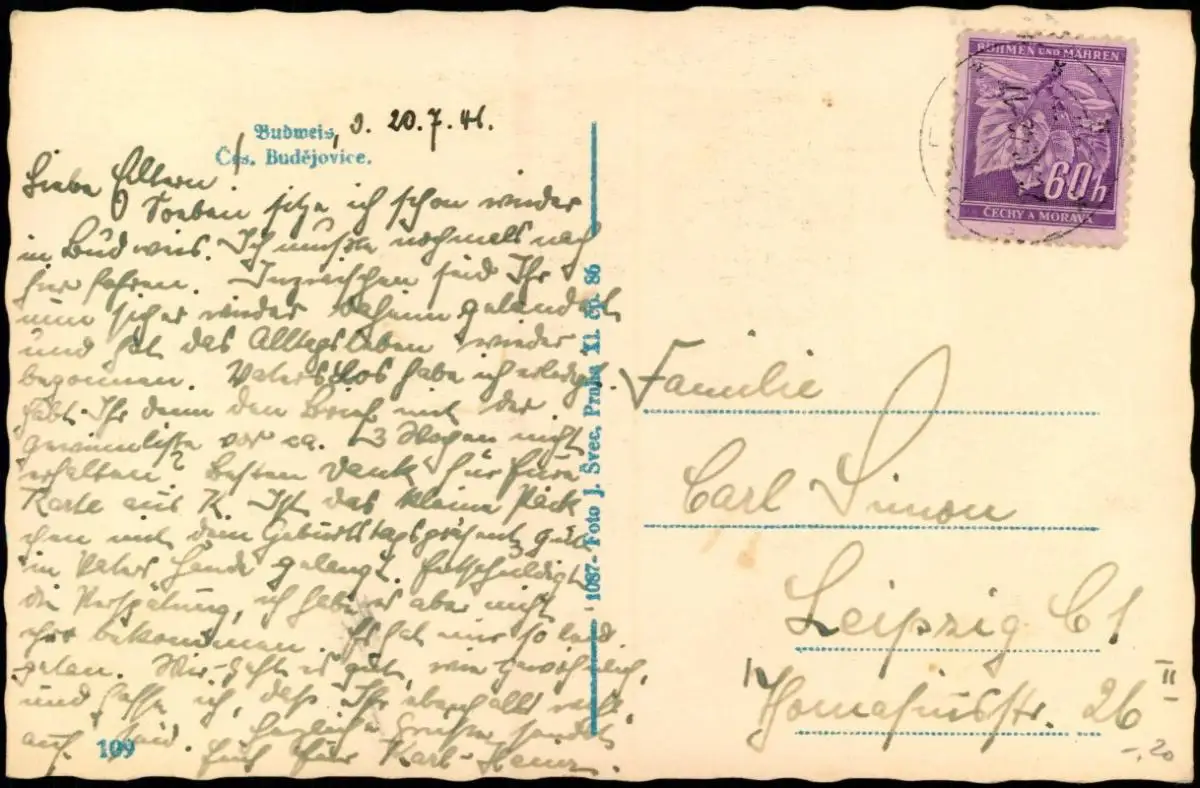 Budweis, d. 20.7.41.
Čes. Budějovice.
Liebe Eltern!
Soeben sitze ich schon wieder
in Budweis. Ich mußte nochmals nach
hier fahren. Inzwischen seid Ihr
nun sicher wieder daheim gelandet
und hat das Alltagsleben wieder
begonnen. Vaters Los habe ich erledigt.
Habt Ihr denn den Brief mit der
Gewinnliste vor ca. 3 Wochen nicht
erhalten? Besten Dank für Eure
Karte aus K. Ist das kleine Päck
chen mit dem Geburtstagspräsent gut
in Vaters Hände gelangt. Entschuldigt
die Verspätung, ich habe es aber nicht
eher bekommen. Es hat mir so leid
getan. Mir geht es gut, wie gewöhnlich,
und hoffe ich, daß Ihr ebenfalls
auf seid. Herzliche Grüße sendet
Euch Euer Karl-Heinz.
109
1087 - Foto J. Švec, Praha XI. čp. 86
BÖHMEN UND MÄHREN
60h
ČECHY A MORAVA
Familie
Carl Simon
Leipzig C 1
Thomasiusstr. 26 II
-,20